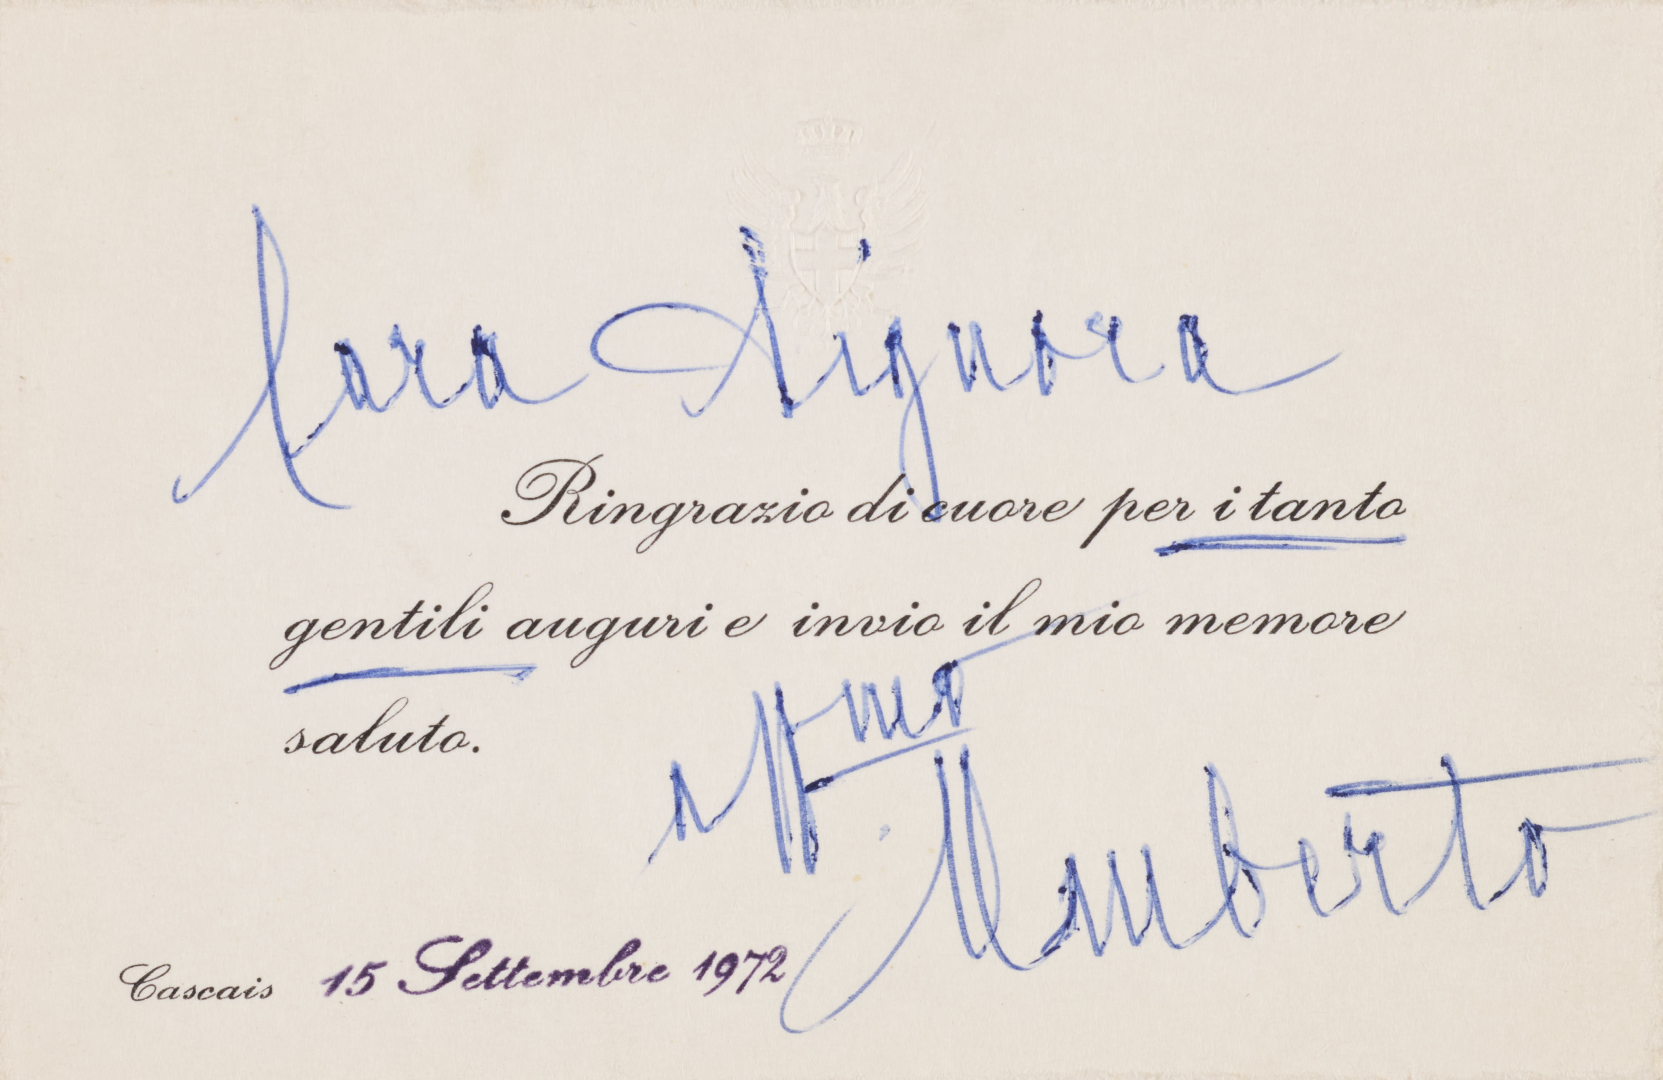 Cara Signora
Ringrazio di cuore per i tanto
gentili auguri e invio il mio memore
saluto.
aff.mo
Umberto
Cascais 15 Settembre 1972